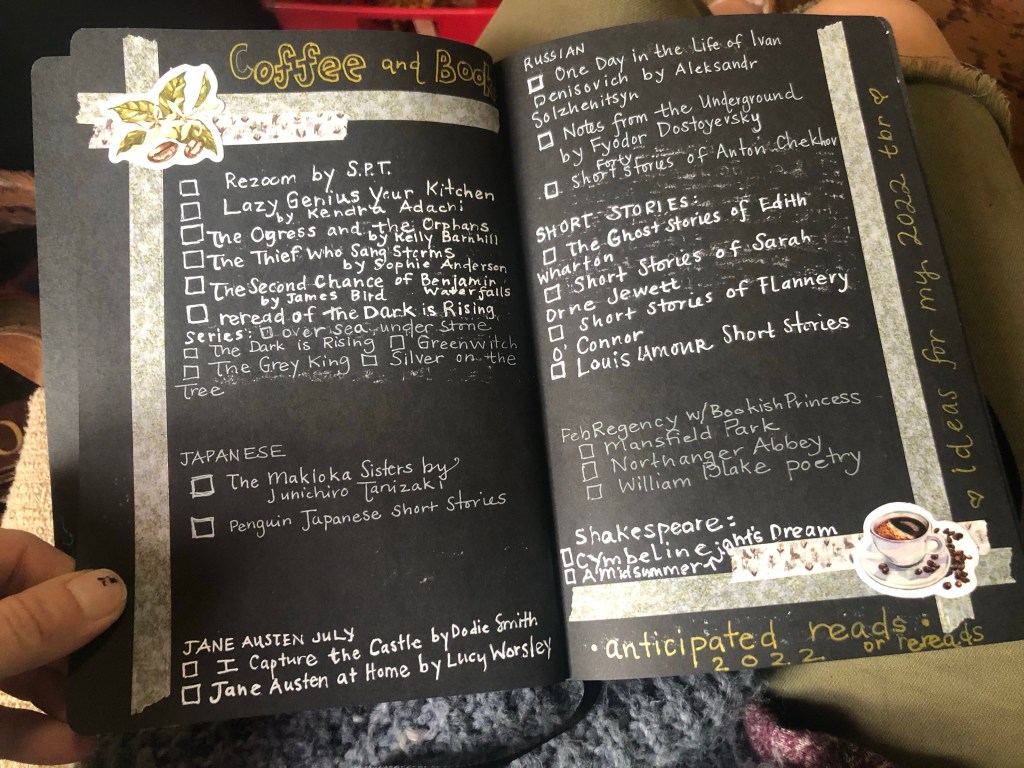 Coffee and Book
Rezoom by S.P.T.
Lazy Genius Your Kitchen
by Kendra Adachi
The Ogress and the Orphans
by Kelly Barnhill
The Thief Who Sang Storms
by Sophie Anderson
The Second Chance of Benjamin
by James Bird Waterfalls
reread of the Dark is Rising
Series: over sea under Stone
The Dark is Rising Greenwitch
The Grey King Silver on the
Tree
JAPANESE
The Makioka Sisters by
Junichiro Tanizaki
Penguin Japanese short Stories
JANE AUSTEN JULY
I Capture the Castle by Dodie Smith
Jane Austen at Home by Lucy Worsley
RUSSIAN
One Day in the Life of Ivan
Denisovich by Aleksandr
Solzhenitsyn
Notes from the Underground
by Fyodor Dostoyevsky
Forty
Short Stories of Anton Chekhov
SHORT STORIES:
The Ghost Stories of Edith
Wharton
Short Stories of Sarah
Orne Jewett
Short Stories of Flannery
O'Connor
Louis L'Amour Short Stories
Feb Regency w/Bookish Princess
Mansfield Park
Northanger Abbey
William Blake poetry
Shakespeare:
Cymbeline
A midsummer night's Dream
• anticipated reads •
2022 or rereads
♡ Ideas for my 2022 tbr ♡